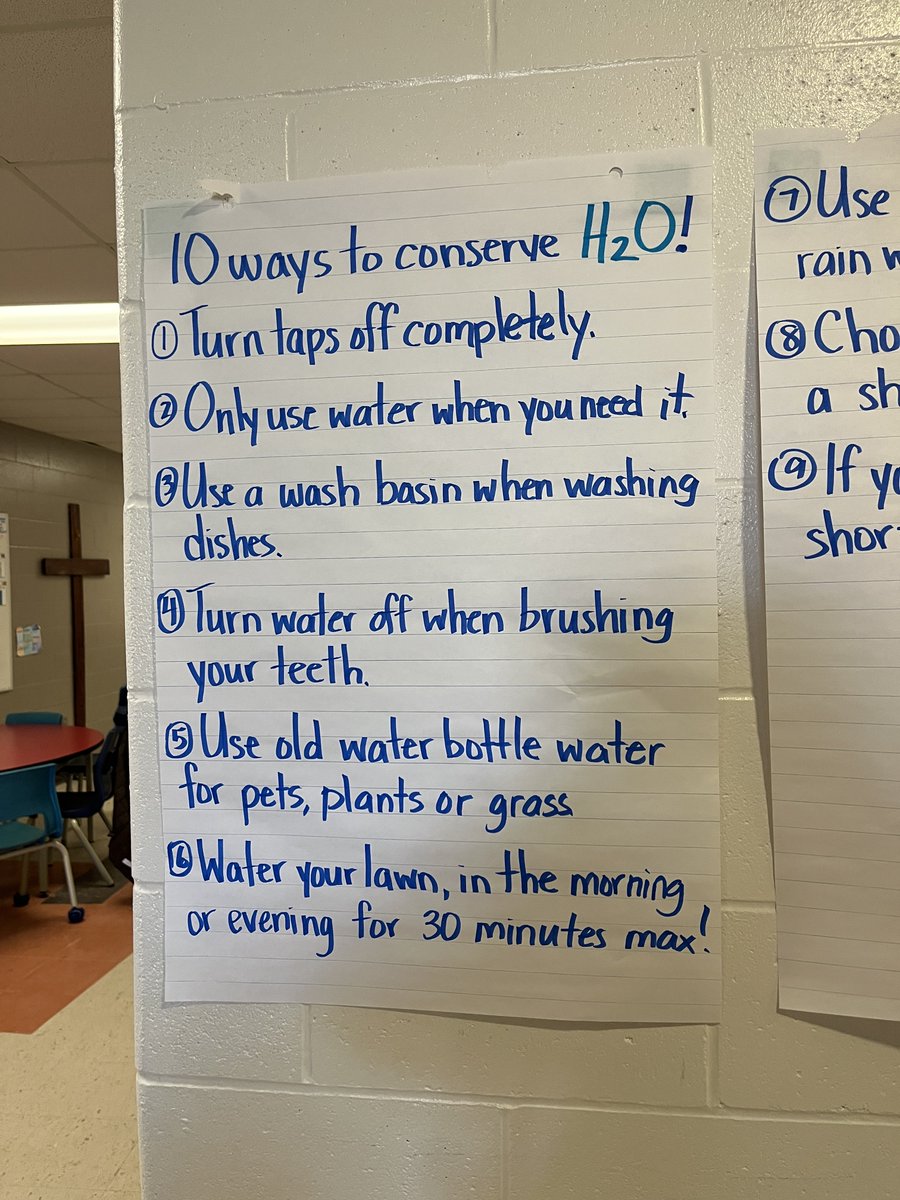 10 ways to conserve H₂O!
① Turn taps off completely.
② Only use water when you need it.
③ Use a wash basin when washing
dishes.
④ Turn water off when brushing
your teeth.
⑤ Use old water bottle water
for pets, plants or grass
⑥ Water your lawn, in the morning
or evening for 30 minutes max!
⑦ Use
rain
⑧
a
⑨ If